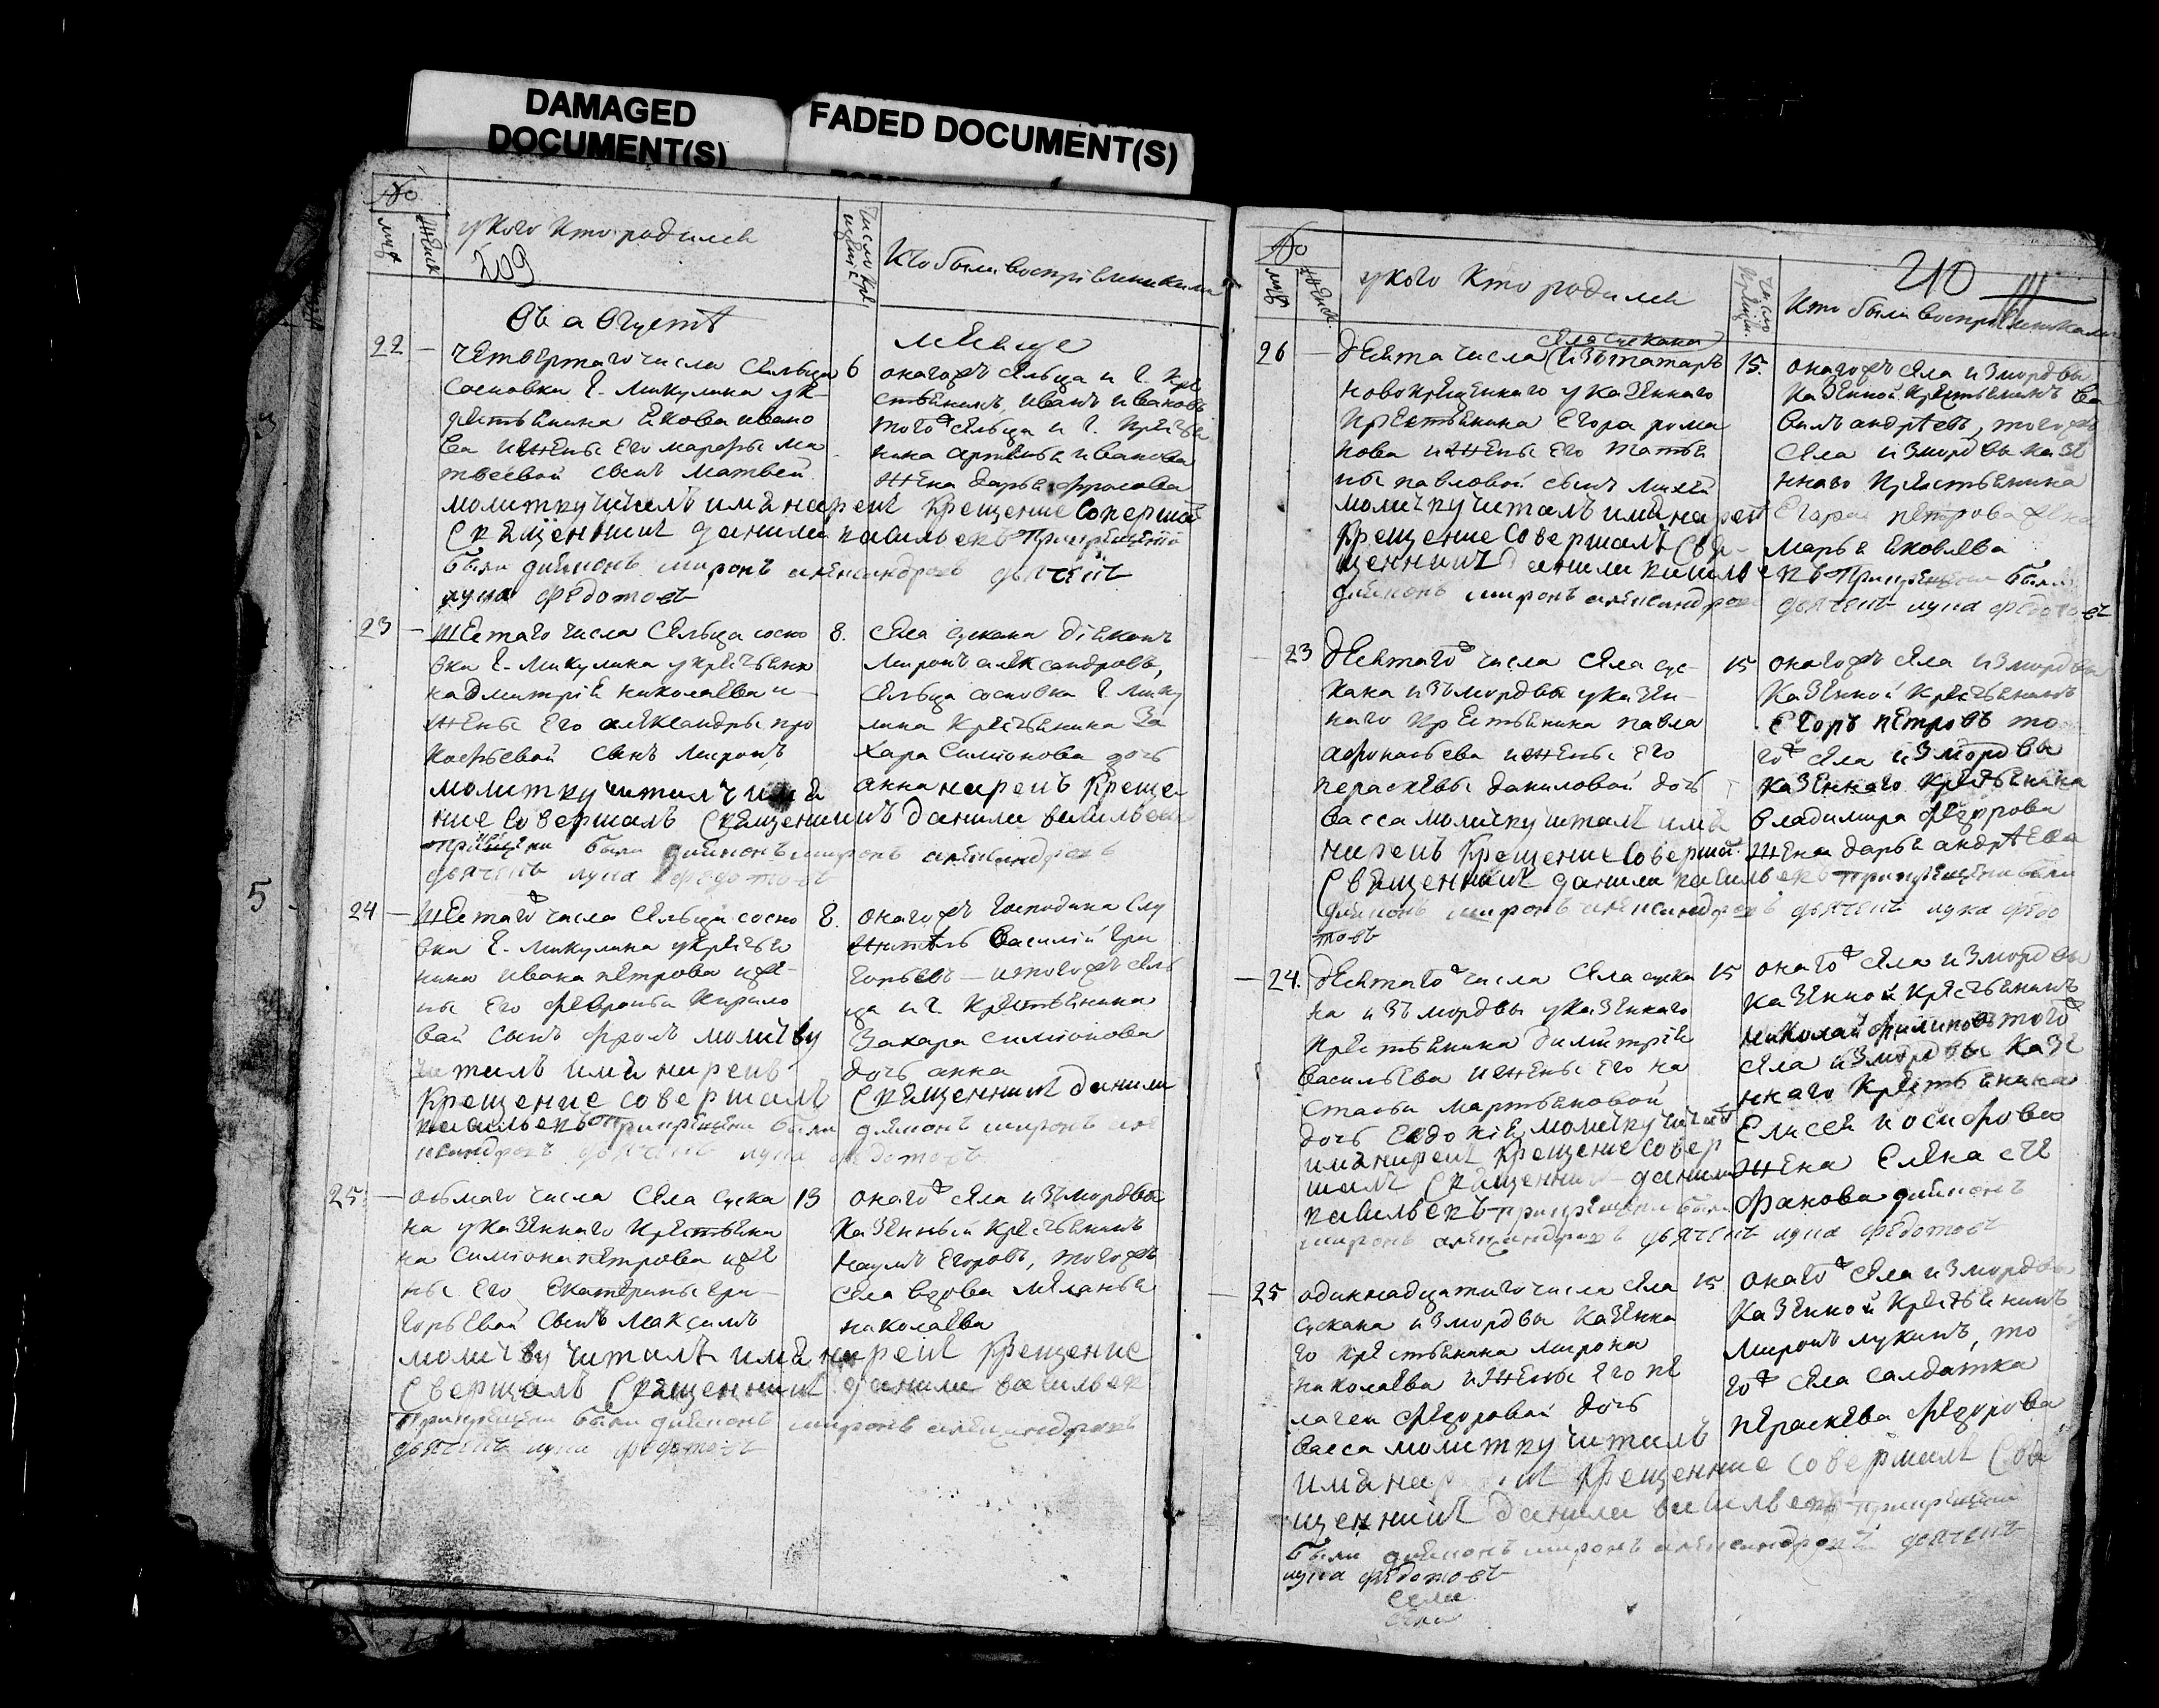 DAMAGED
DOCUMENT(S)
FADED DOCUMENT(S)
№
муж
женск
укого кто родился
209
число кре
щения
кто были восприемниками
въ августѣ
мѣсяце
22
четвертаго числа сельца
6
сосновки г. микулина у к
рестьянина якова ивано
ва и жены его марфы ма
твеевой сынъ матвей
молитву читалъ имя нарекъ крещение совершалъ
священникъ данила васильевъ при крещении
были диаконъ миронъ александровъ дьячекъ
лука федотовъ
онагожъ сельца и г. кре
стьянинъ, иванъ ивановъ
тогожъ сельца и г. крестья
нина артемья иванова
жена дарья фролова
23
шестаго числа сельца сосно
8.
вки г. микулина у крестьяни
на дмитрия николаева и
жены его александры про
кофьевой сынъ миронъ
молитву читалъ имя
нарекъ креще
ние совершалъ священникъ данила васильевъ
при крещении были диаконъ миронъ александровъ
дьячекъ лука федотовъ
села сускана діяконъ
миронъ александровъ,
сельца сосновка г. мику
лина крестьянина за
хара симионова дочь
анна
24
шестаго числа сельца сосно
8.
вки г. микулина у крестья
нина ивана петрова и же
ны его февроньи кирило
вой сынъ фролъ молитву
читалъ имя нарекъ
крещение совершалъ
священникъ данила
васильевъ при крещении были диаконъ миронъ але
ксандровъ дьячекъ лука федотовъ
онагожъ господина слу
житель василий гри
горьевъ и тогожъ сель
ца и г. крестьянина
захара симионова
дочь анна
25
осьмаго числа села суска
13
на у казеннаго крестьяни
на симиона петрова и же
ны его екатерины гри
горьевой сынъ максимъ
молитву читалъ имя нарекъ крещение
свершалъ священникъ данила васильев
при крещении были диаконъ миронъ александровъ
дьячекъ лука федотовъ
онагожъ села изъ мордвы
казенный крестьянинъ
наумъ егоровъ, тогожъ
села вдова меланья
николаева
№
муж
женск
укого кто родился
число
крещ.
210
кто были восприемниками
26
села сускана
десята числа изъ татаръ
15.
новокрещеннаго у казеннаго
крестьянина егора рома
нова и жены его татья
ны павловой сынъ михей
молитву читалъ имя нарекъ
крещение совершалъ свя
щенникъ данила васильевъ при крещении были
диаконъ миронъ александровъ дьячекъ лука федотовъ
онагожъ села из мордвы
казенной крестьянинъ ва
вилъ андреевъ, тогожъ
села из мордвы казе
ннаго крестьянина
егора петрова жена
марья яковлева
23
десятаго числа села сус
15
кана изъ мордвы у казен
наго крестьянина павла
афонасьева и жены его
пераскевы даниловой дочь
васса молитву читалъ имя
нарекъ крещение соверша.
священникъ данила васильевъ при крещении были
диаконъ миронъ александровъ дьячекъ лука федо
товъ
онагожъ села из мордвы
казенной крестьянинъ
егоръ петровъ то
гожъ села из мордвы
казеннаго крестьянина
владимира федорова
жена дарья андреева
24.
десятаго числа села суска
15
на изъ мордвы у казеннаго
крестьянина димитрия
васильева и жены его на
стасьи мартыновой
дочь евдокия молитву читалъ
имя нарекъ крещение совер
шалъ священник данила
васильевъ при крещении были
диаконъ
миронъ александровъ дьячекъ лука федотовъ
онагожъ села из мордвы
казенной крестьянинъ
николай филиповъ тогожъ
села из мордвы казе
ннаго крестьянина
елисея иосифова
жена елена сте
фанова
25
одиннадцатаго числа села
15
сускана из мордвы казенна
го крестьянина мирона
николаева и жены его пе
лагеи федоровой дочь
васса молитву читалъ
имя нарекъ крещенние совершалъ свя
щенникъ данила васильевъ при крещении
были диаконъ миронъ александровъ дьячекъ
лука федотовъ
онагожъ села из мордвы
казенной крестьянинъ
миронъ лукинъ, то
гожъ села салдатка
пераскева федорова
5